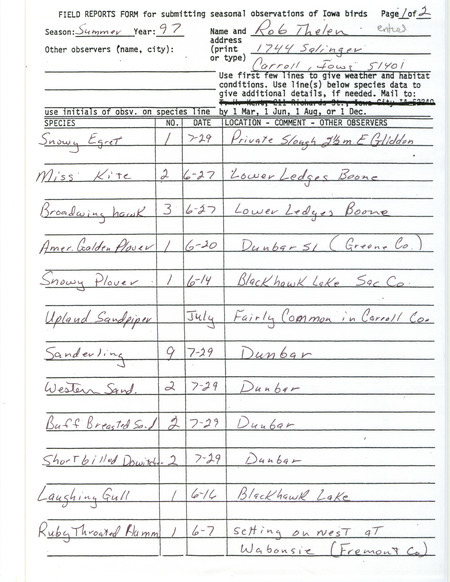 FIELD REPORTS FORM for submitting seasonal observations of Iowa birds Page 1 of 2
Season: Summer Year: 97 Name and Rob Thelen
address
Other observers (name, city): (print 1744 Salinger
or type) Carroll, Iowa 51401
Use first few lines to give weather and habitat
conditions. Use line(s) below species data to
give additional details, if needed. Mail to:
use initials of obsv. on species line by 1 Mar, 1 Jun, 1 Aug, or 1 Dec.
SPECIES NO. DATE LOCATION - COMMENT - OTHER OBSERVERS
Snowy Egret 1 7-29 Private Slough 2½ m. E Glidden
Miss. Kite 2 6-27 Lower Ledges Boone
Broadwing hawk 3 6-27 Lower Ledges Boone
Amer. Golden Plover 1 6-20 Dunbar Sl (Greene Co.)
Snowy Plover 1 6-14 Blackhawk Lake Sac Co.
Upland Sandpiper July Fairly Common in Carroll Co.
Sanderling 9 7-29 Dunbar
Western Sand. 2 7-29 Dunbar
Buff Breasted Sand 2 7-29 Dunbar
Short billed Dowitch. 2 7-29 Dunbar
Laughing Gull 1 6-16 Blackhawk Lake
Ruby Throated Humm 1 6-7 setting on nest at
Wabonsie (Fremont Co)